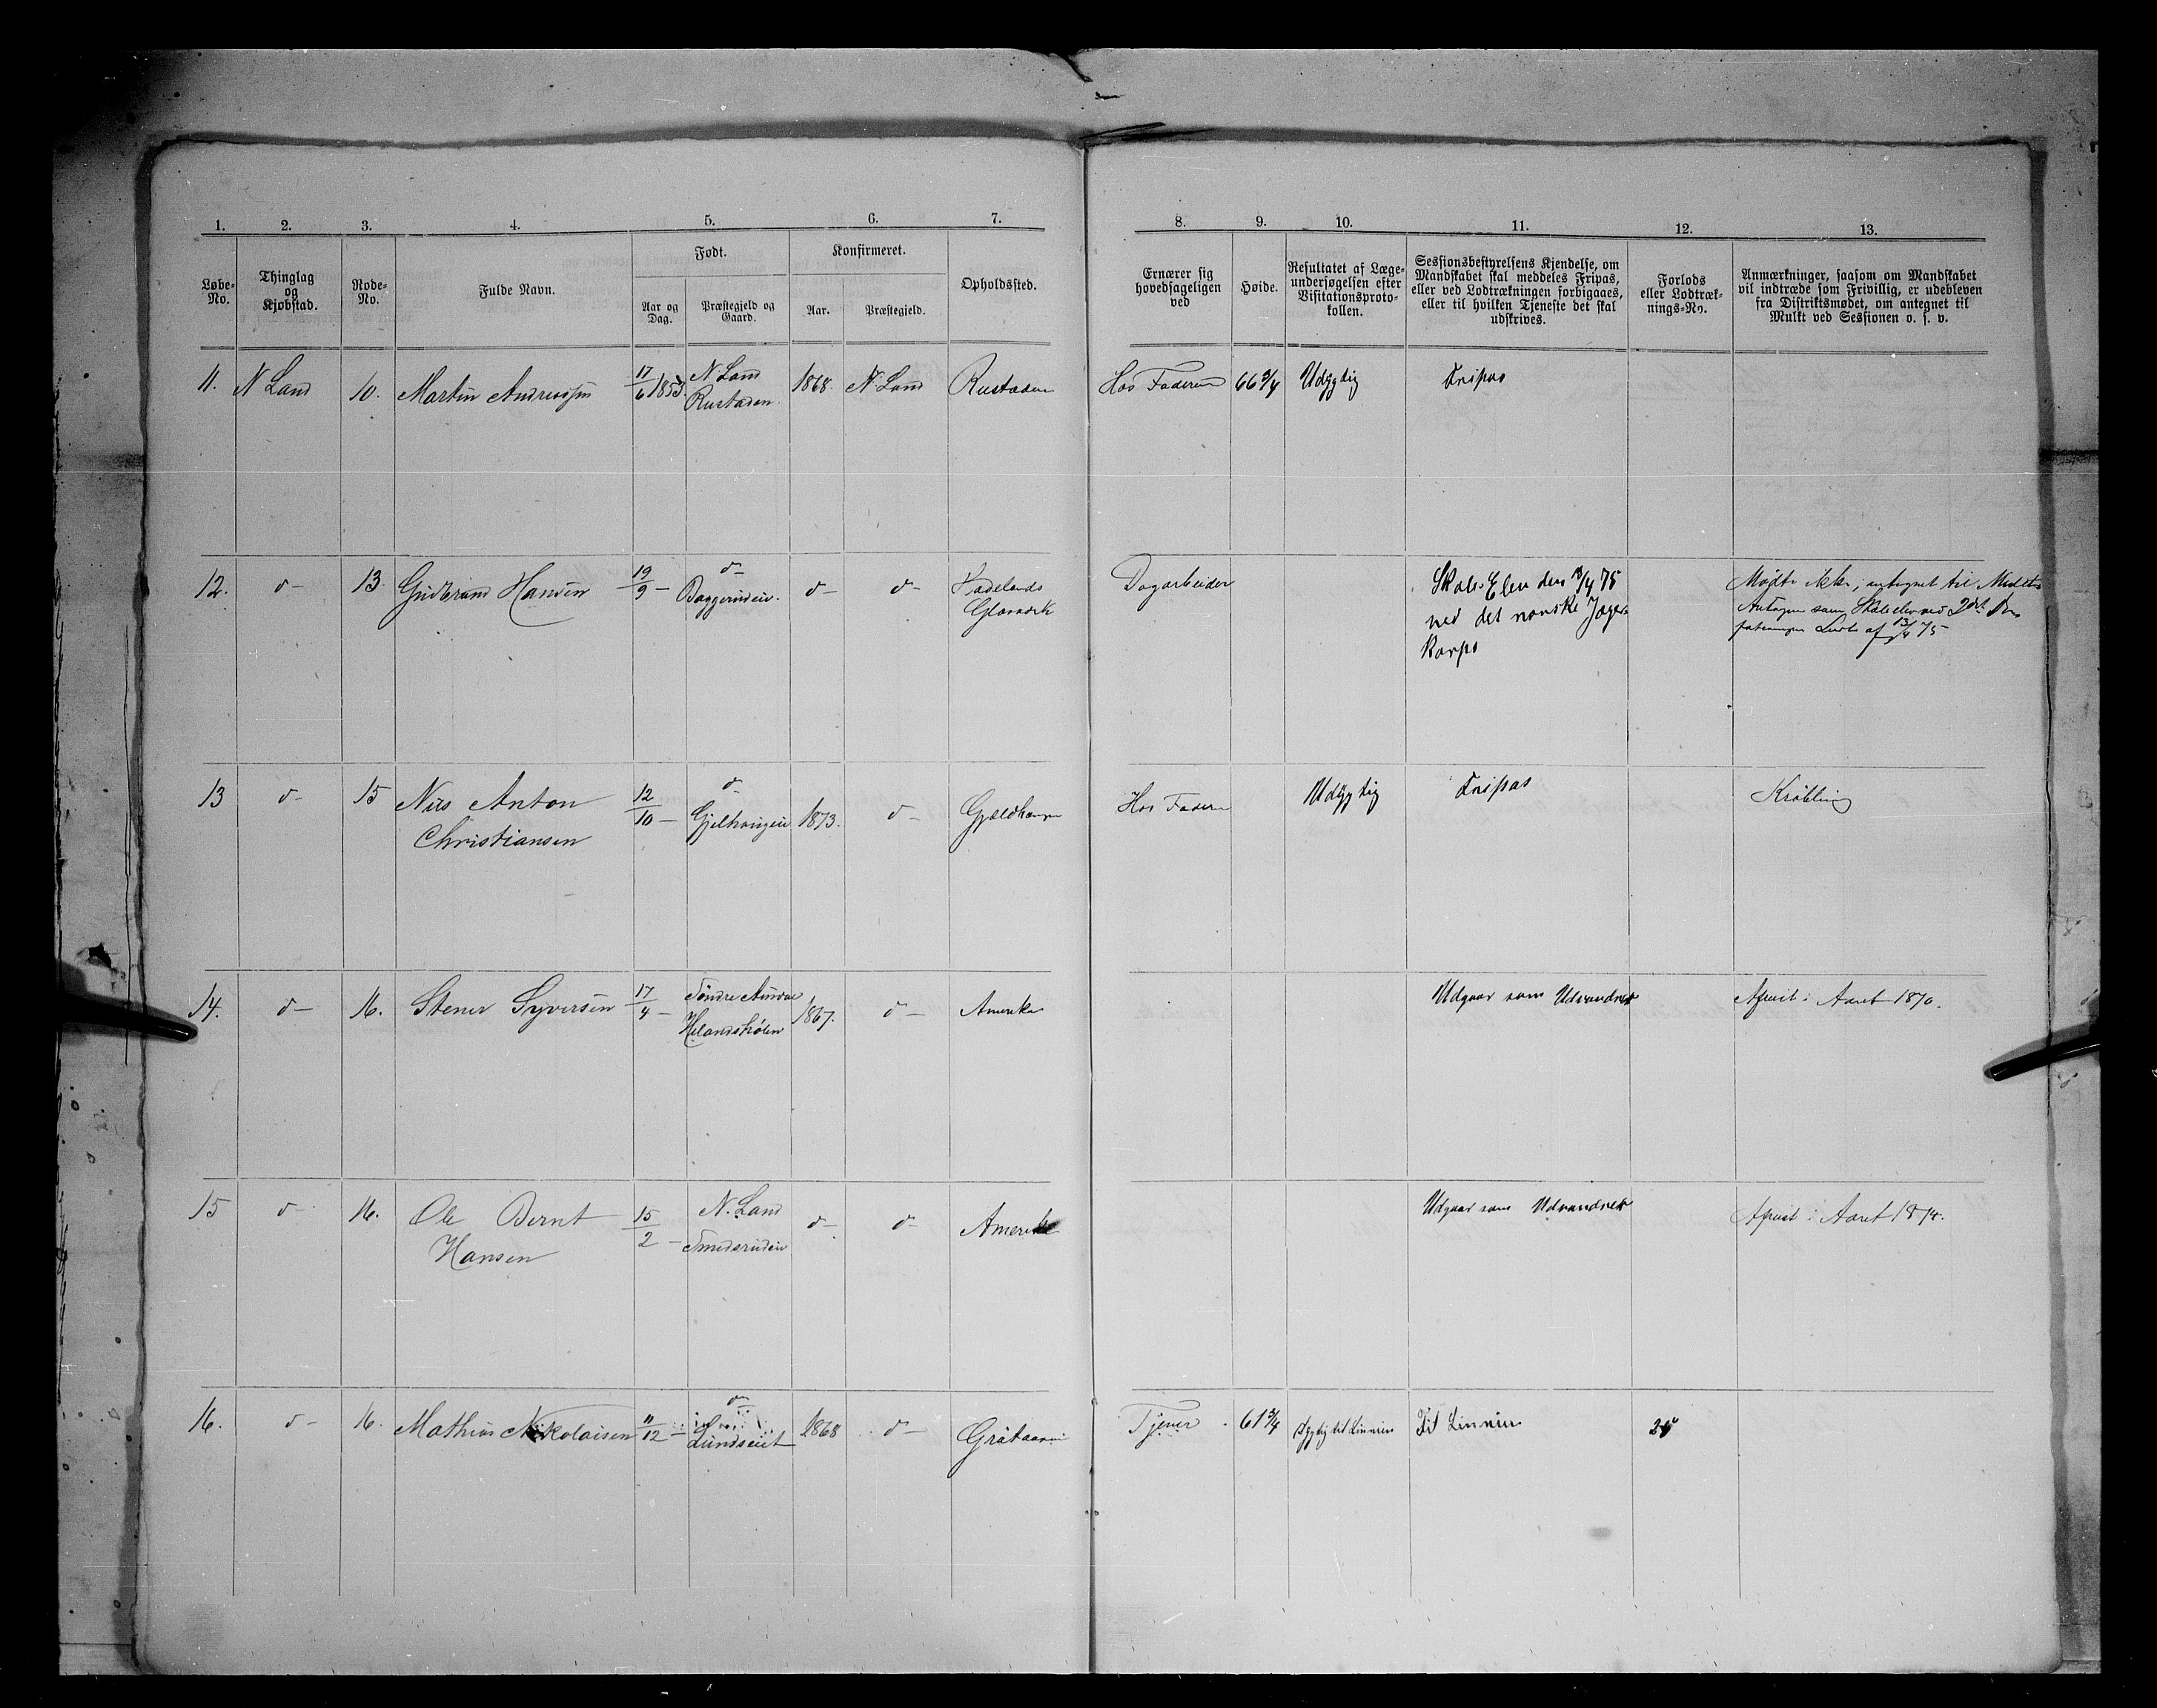 1. 2. 3. 4. 5. 6. 7. 8. 9. 10. 11. 12. 13.
Løbe-No.
Thinglag og Kjøbstad.
Rode-No.
Fulde Navn.
Født.
Aar og Dag.
Præstegjeld og Gaard.
Konfirmeret.
Aar.
Præstegjeld.
Opholdssted.
Ernærer sig hovedsageligen ved
Høide.
Resultatet af Læge-undersøgelsen efter Visitationsproto-kollen.
Sessionsbestyrelsens Kjendelse, om Mandskabet skal meddeles Fripas, eller ved Lodtrækningen forbigaaes, eller til hvilken Tjeneste det skal udskrives.
Forlods eller Lodtræk-nings-No.
Anmærkninger, saasom om Mandskabet vil indtræde som Frivillig, er udebleven fra Distriktsmødet, om antegnet til Mulkt ved Sessionen o. s. v.
11. N Land 10. Martin Andreassen 17/6 1853. N Land Rustaden 1868. N Land Rustaden Hos Faderen 66 3/4 Udygtig Fripas
12. d- 13. Gudbrand Hansen 19/9 - d- Baggerudeie. d- d- Hadelands Glasværk Dagarbeider
Skole-Elev den 13/4 75
ved det norske Jæger-
Korps
Mødte ikke; antegnet til Mulkt
Antagen som Skoleelev ved
af 13/4 75
13 d- 15 Nils Anton Christiansen 12/10 - d- 1873. d- Hos Faderen Udygtig Fripas Krøbling
14. d- 16. Stener Syversen 17/4 - Søndre Aurdal 1867. d- Amerika Udgaar som Udvandret Afreist i Aaret 1870.
15 d- 16. Ole Bernt Hansen 15/2 - N. Land Smedsrudeie d- d- Amerika Udgaar som Udvandret Afreist i Aaret 187
16. d- 16. Mathias Nikolaisen 11/12 - d- Lundseiet 1868 d- Tjener 61 3/4 Dygtig til Linnien Til Linnien